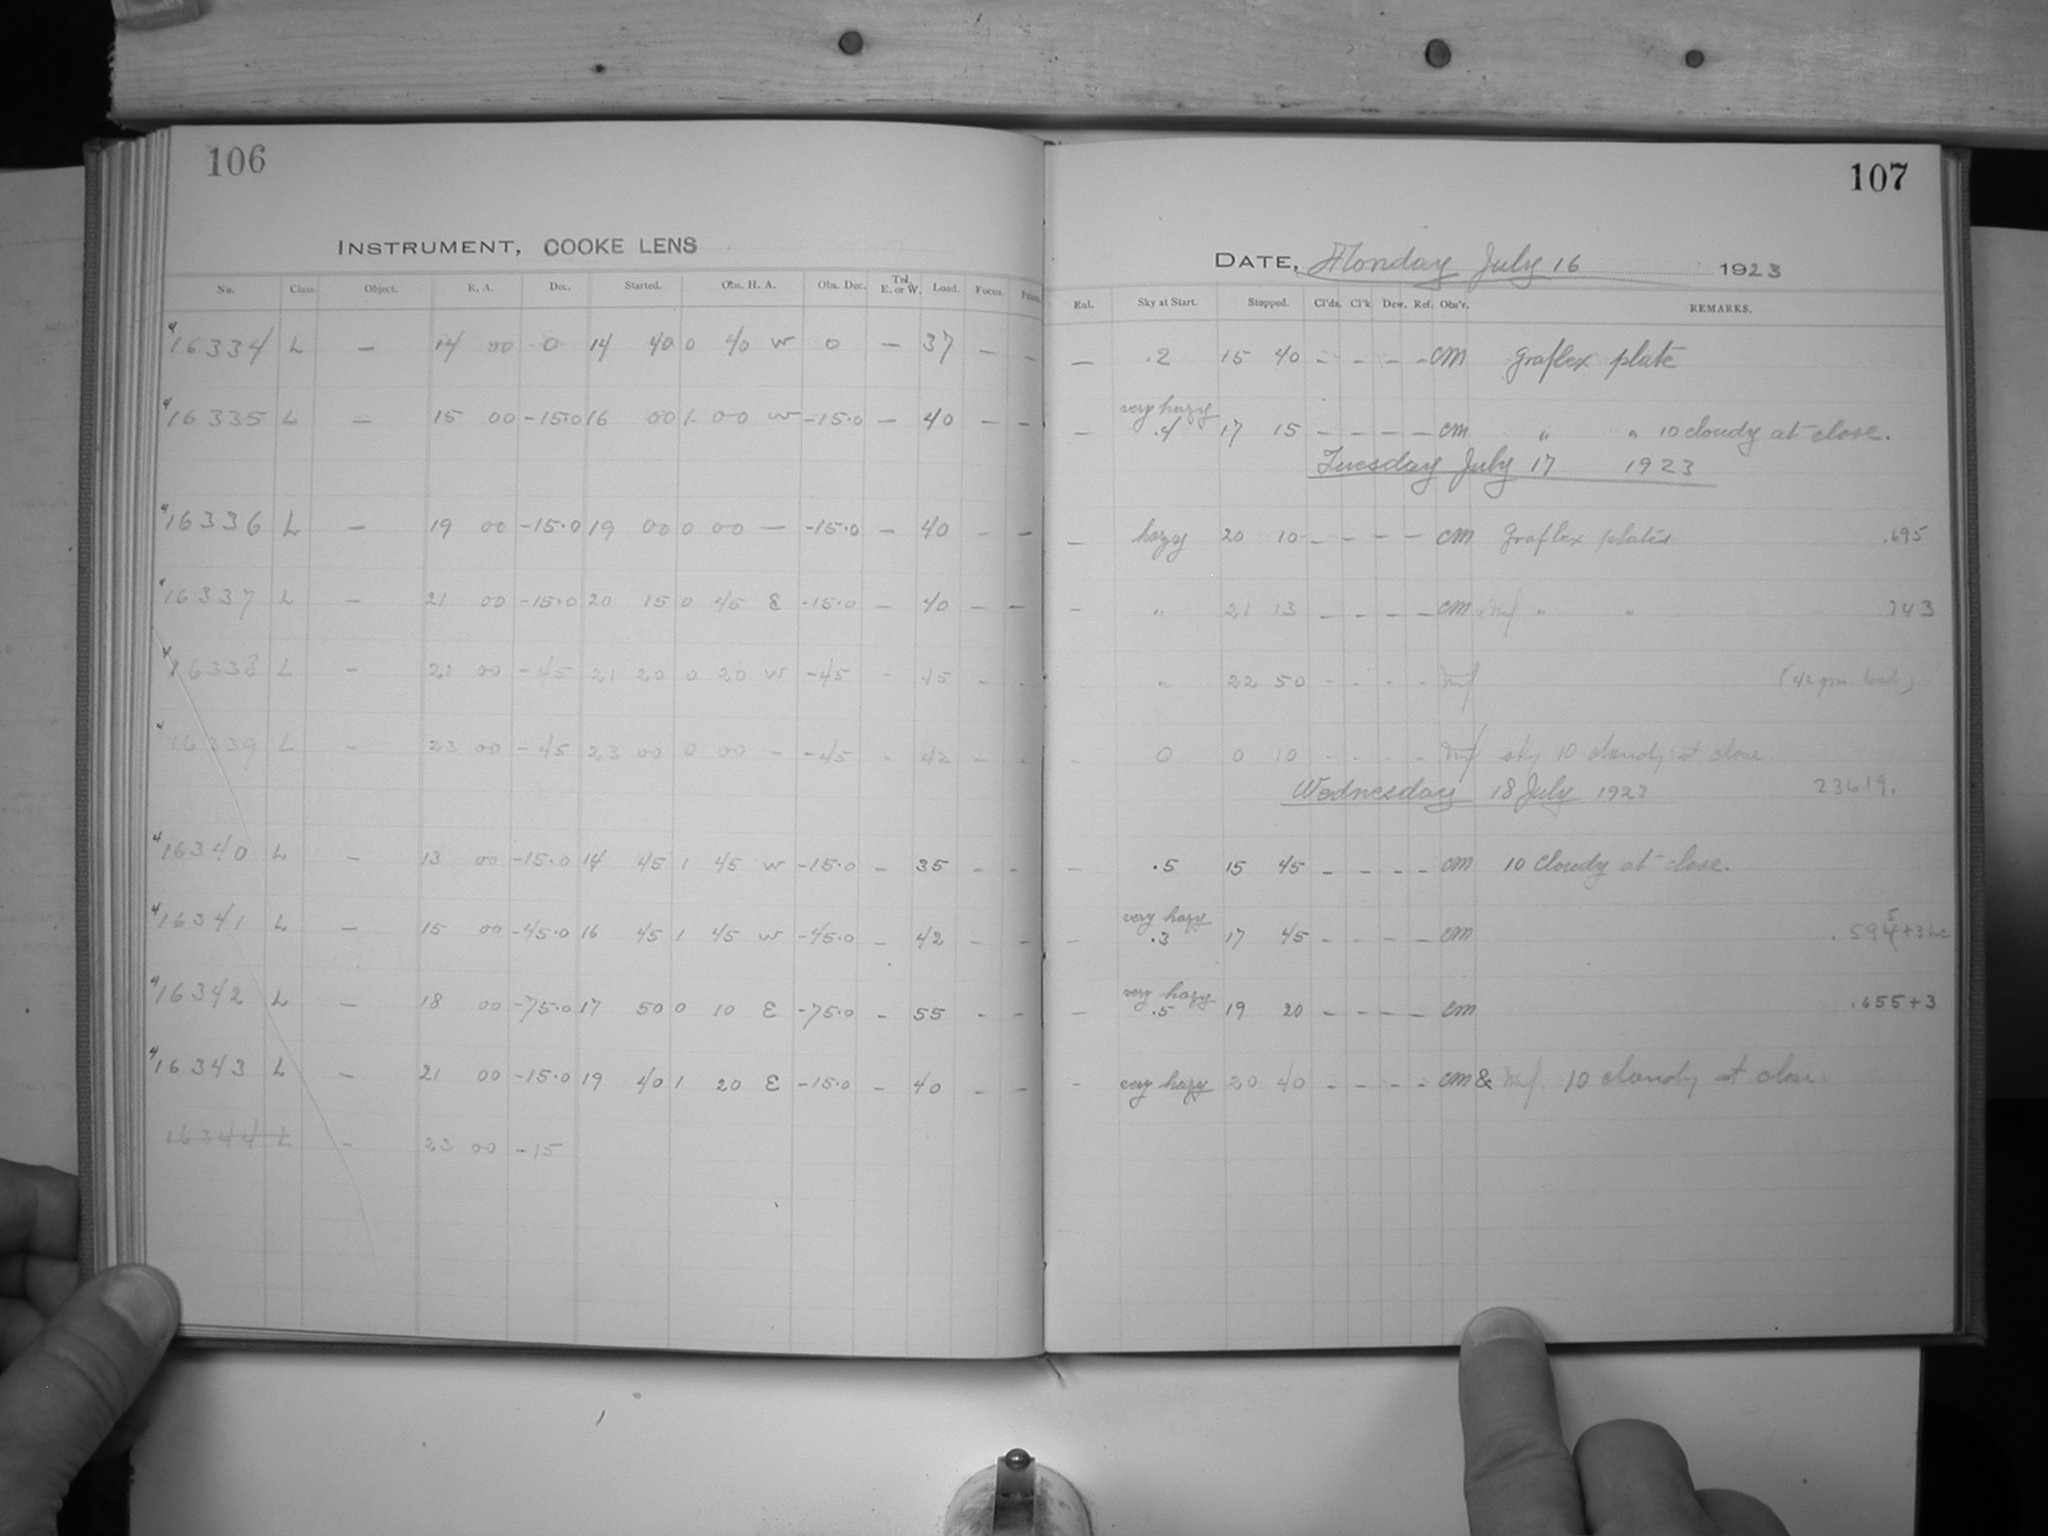 106
107
INSTRUMENT, COOKE LENS
DATE, Monday July 16 1923
No. Class. Object. R. A. Dec. Started. Obs. H. A. Obs. Dec. Tel. E. or W. Load. Focus. Prism. Enl. Sky at Start. Stopped. Cl'ds. Cl'k Dew. Ref. Obs'r. REMARKS.
4 16334 L — 14 00 0 14 40 0 40 W 0 — 37 — — — .2 15 40 — — — — cm Graflex plate
4 16335 L — 15 00 -15.0 16 00 1 00 W -15.0 — 40 — — — very hazy .4 17 15 — — — — cm " " 10 cloudy at close.
Tuesday July 17 1923
4 16336 L — 19 00 -15.0 19 00 0 00 — -15.0 — 40 — — — hazy 20 10 — — — — cm Graflex plates .695
4 16337 L — 21 00 -15.0 20 15 0 45 E -15.0 — 40 — — — " 21 13 — — — — cm " " 743
4 16338 L — 21 00 -45 21 20 0 20 W -45 - 45 - - - " 22 50 - - - -
4 16339 L — 23 00 -45 23 00 0 00 - -45 - 42 - - - 0 0 10 - - - - sky 10 cloudy at close
Wednesday 18 July 1923 23619.
4 16340 L — 13 00 -15.0 14 45 1 45 W -15.0 — 35 - - - .5 15 45 - - - - cm 10 cloudy at close.
4 16341 L — 15 00 -45.0 16 45 1 45 W -45.0 - 42 - - - very hazy .3 17 45 - - - - cm
4 16342 L — 18 00 -75.0 17 50 0 10 E -75.0 - 55 - - - very hazy .5 19 20 - - - - cm .655+3
4 16343 L — 21 00 -15.0 19 40 1 20 E -15.0 - 40 - - - very hazy 20 40 - - - - cm & 10 cloudy at close
16344 L - 23 00 -15